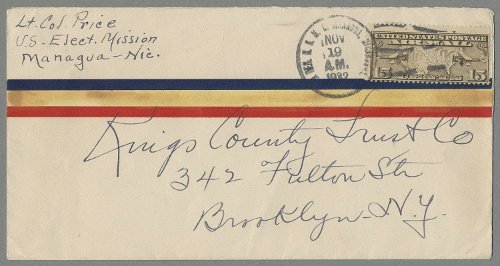 Lt. Col. Price
U.S. Elect. Mission
Managua - Nic.
NOV
19
A.M.
1932
UNITED STATES POSTAGE
AIR MAIL
15 15
Kings County Trust Co
342 Fulton Str
Brooklyn N.Y.